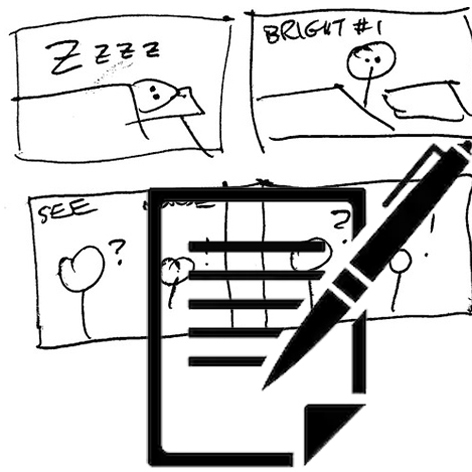 Z z z z
BRIGHT #1
SEE
?
?
!